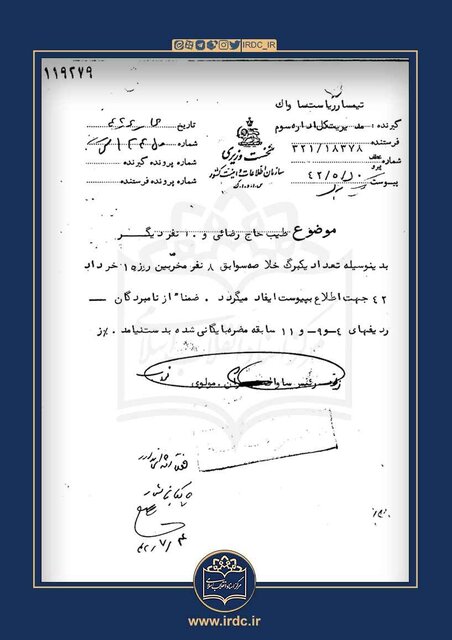 IRDC_IR
119279
تیمسار ریاست ساواک
گیرنده : مدیریت کل اداره سوم
فرستنده
شماره ۳۲۱/۱۸۳۷۸
عطف
پیرو
پیوست ۴۲/۵/۱۰
نخست وزیری
سازمان اطلاعات و امنیت کشور
س.ا.و.ا.ک
تاریخ
شماره
شماره پرونده گیرنده
شماره پرونده فرستنده
موضوع طیب حاج رضائی و ۱۰ نفر دیگر
بدینوسیله تعداد یکبرگ خلاصه سوابق ۸ نفر مخربین روز ۱۵ خرداد
۴۲ جهت اطلاع بپیوست ایفاد میگردد . ضمنا" از نامبردگان —
ردیفهای ۴-و۹- و ۱۱ سابقه مضره بایگانی شده بدست نیامد .
مولوی
بایگانی شود
۴۲/۷/۴
مرکز اسناد انقلاب اسلامی
www.irdc.ir